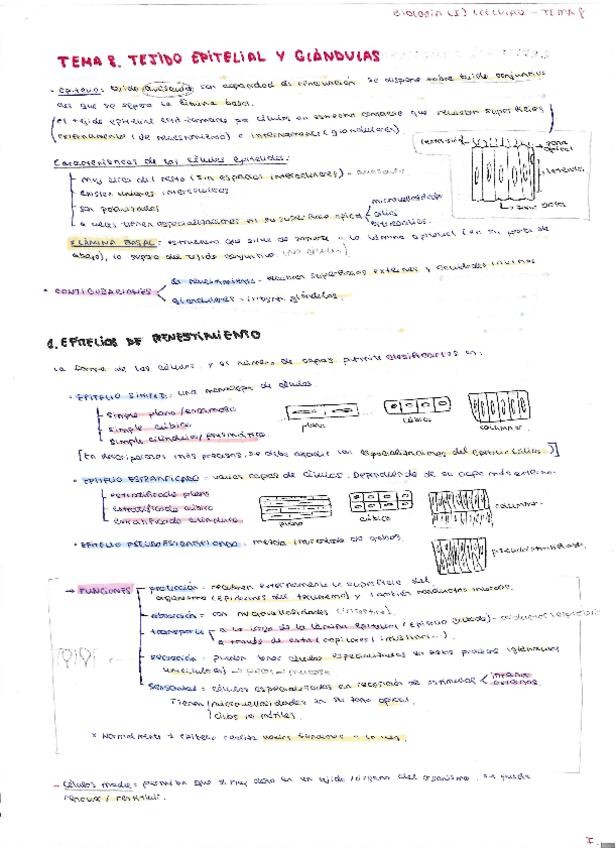 BIOLOGÍA (I) CELULAR - TEMA 8
TEMA 8. TEJIDO EPITELIAL Y GLÁNDULAS
· EPITELIO: tejido avascular con capacidad de renovación. Se dispone sobre tejido conjuntivo
del que se separa la lámina basal.
El tejido epitelial está formado por células en estrecho contacto que recubren superficies
externamente (de revestimiento) o internamente (glandulares).
Características de las células epiteliales:
muy cerca del resto (sin espacios intercelulares) - avascular
existen uniones intercelulares
son polarizadas
a veces tienen especializaciones en su superficie apical
microvellosidades
cilios
estereocilios
zona apical
laterales
zona basal
LÁMINA BASAL = estructura que sirve de soporte a la lámina epitelial (en su parte de
abajo), lo separa del tejido conjuntivo
· CONFIGURACIONES
de revestimiento - recubren superficies externas y cavidades internas
glandulares - forman glándulas.
1. EPITELIOS DE REVESTIMIENTO
La forma de las células y el número de capas permite clasificarlos en:
· EPITELIO SIMPLE: una monocapa de células.
simple plano/escamoso
simple cúbico
simple cilíndrico/prismático
plano
cúbico
columnar
[En descripciones más precisas, se debe añadir las especializaciones del epitelio (cilios)]
· EPITELIO ESTRATIFICADO - varias capas de células. Dependiendo de su capa más externa.
estratificado plano
estratificado cúbico
estratificado cilíndrico
plano
cúbico
columnar
· EPITELIO PSEUDOESTRATIFICADO: mezcla de ambos.
pseudoestratificado
→ FUNCIONES
protección = recubren externamente la superficie del
organismo (epidermis del tegumento) y también conductos internos.
absorción = con microvellosidades (intestino)
transporte
a lo largo de la lámina epitelial (epitelio ciliado) - conductos respiratorios
a través de esta (capilares
secreción = pueden tener células especializadas en estos procesos (glándulas
unicelulares)
sensorial = células especializadas en recepción de estímulos
internos
externos
Tienen microvellosidades en su zona apical.
cilios no móviles.
* Normalmente 1 epitelio realiza varias funciones a la vez.
- Células madre = permiten que si muy daño en un tejido/órgano del organismo, se pueda
renovar / restituir.
1.